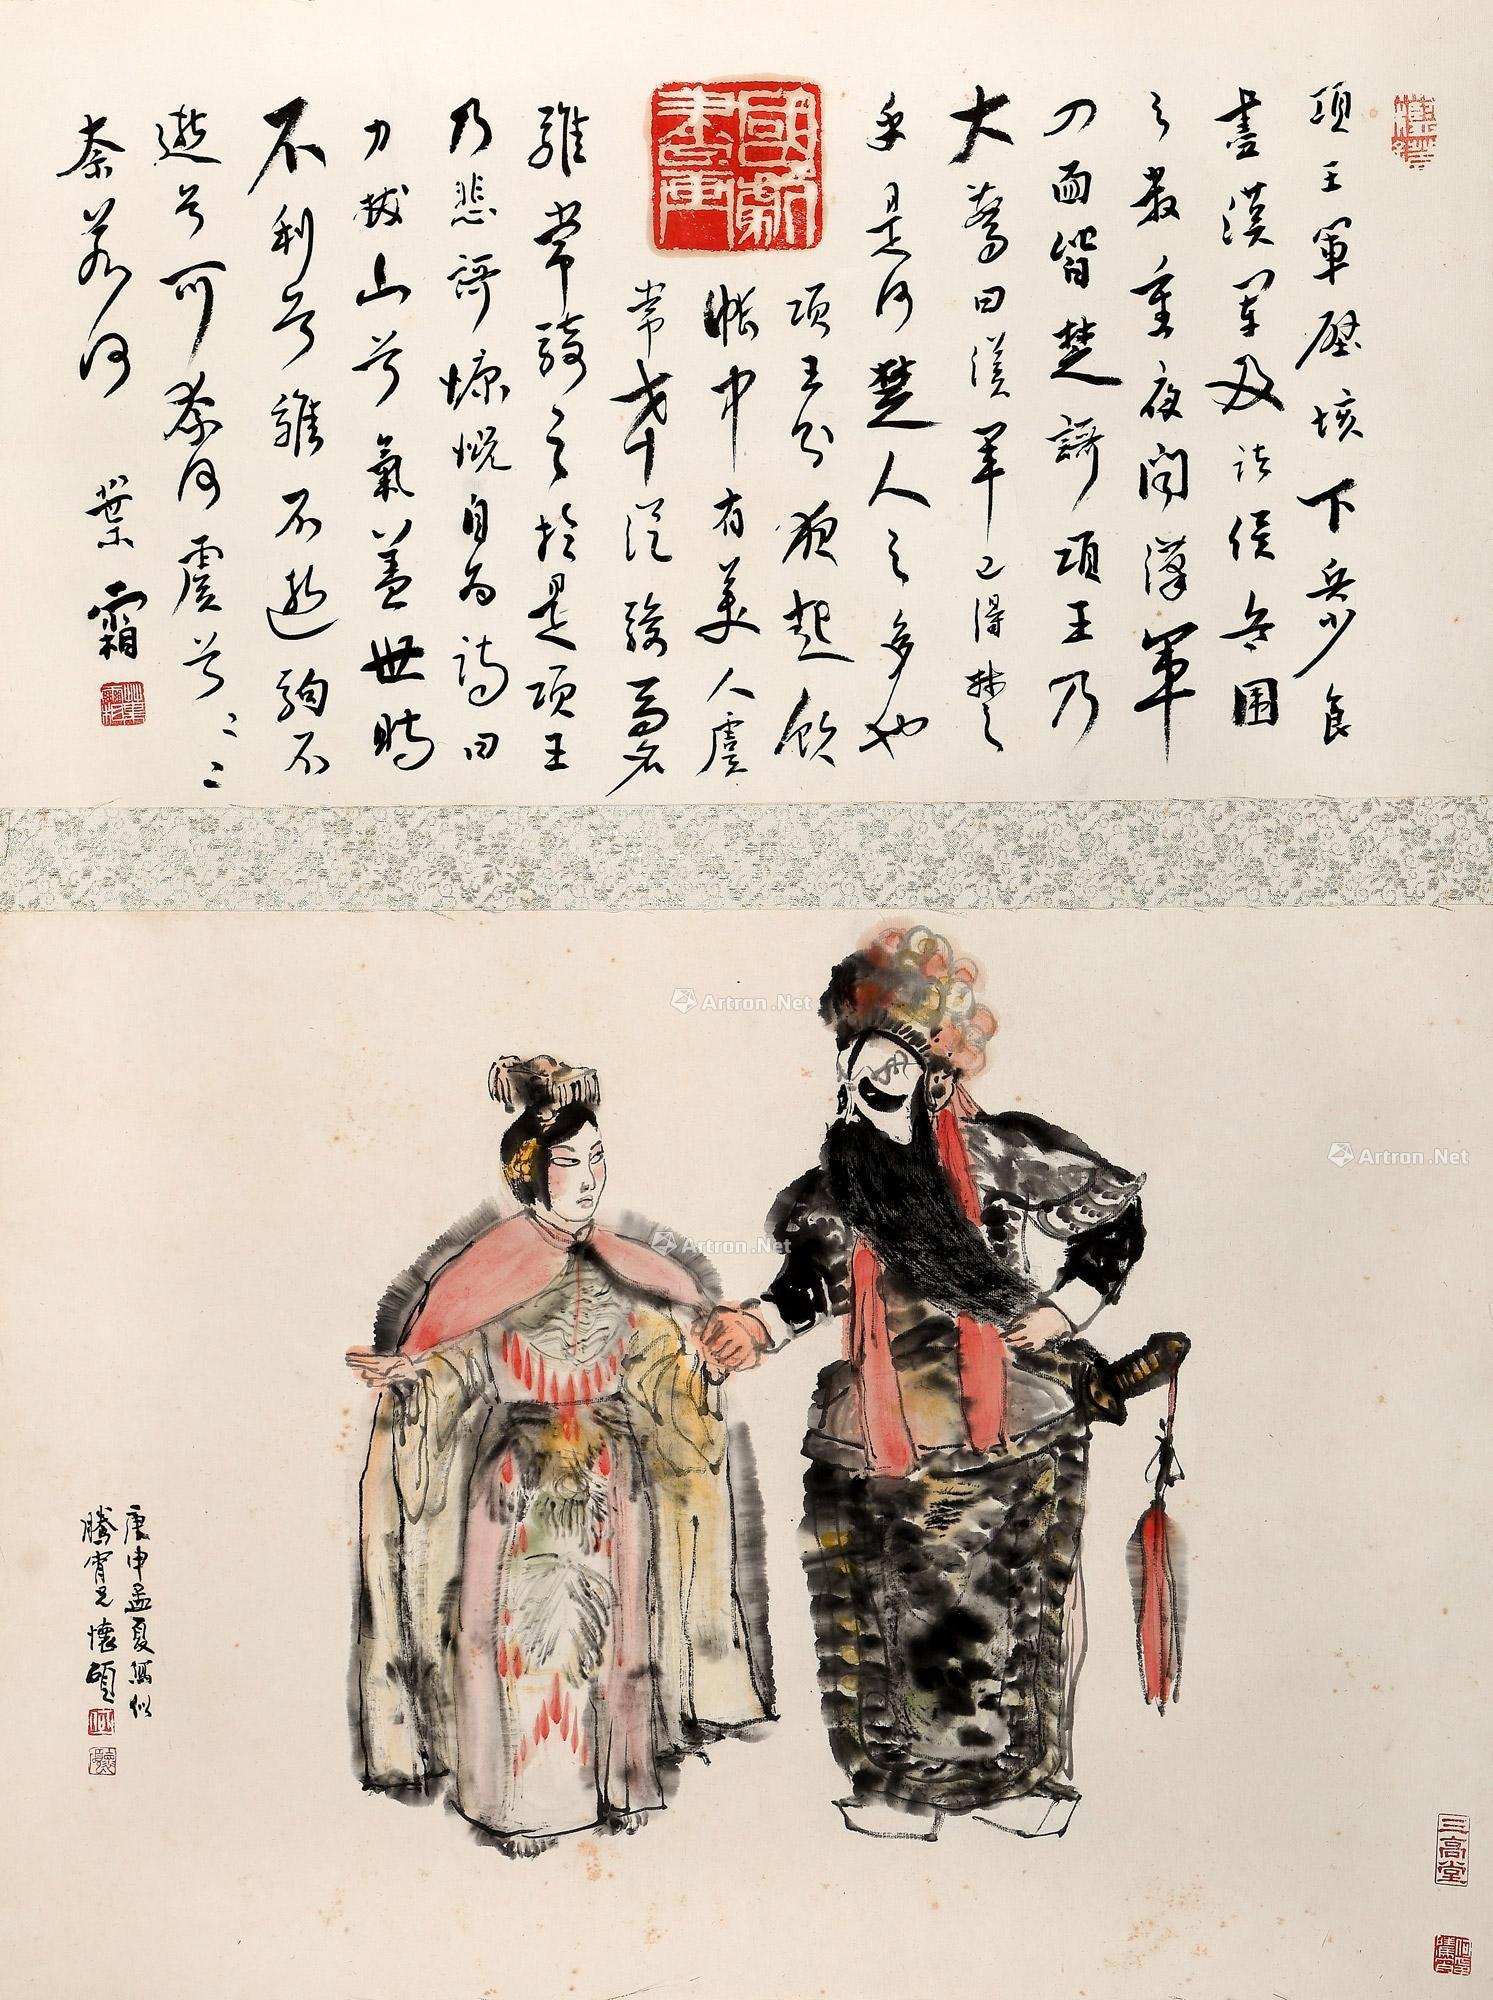 項王軍壁垓下兵少食
盡漢軍及諸侯兵圍
之數重夜聞漢軍
四面皆楚歌項王乃
大驚曰漢軍已得楚
乎是何楚人之多也
項王則夜起飲
帳中有美人虞
常幸從駿馬名
騅常騎之於是項王
乃悲歌慷慨自為詩曰
力拔山兮氣蓋世時
不利兮騅不逝駒不
逝兮可奈何虞兮ミミ
奈若何
葉霜
葉霜
Artron.Net
Artron.Net
Artron.Net
庚申孟夏寫似
騰霄兄懷碩
三高堂